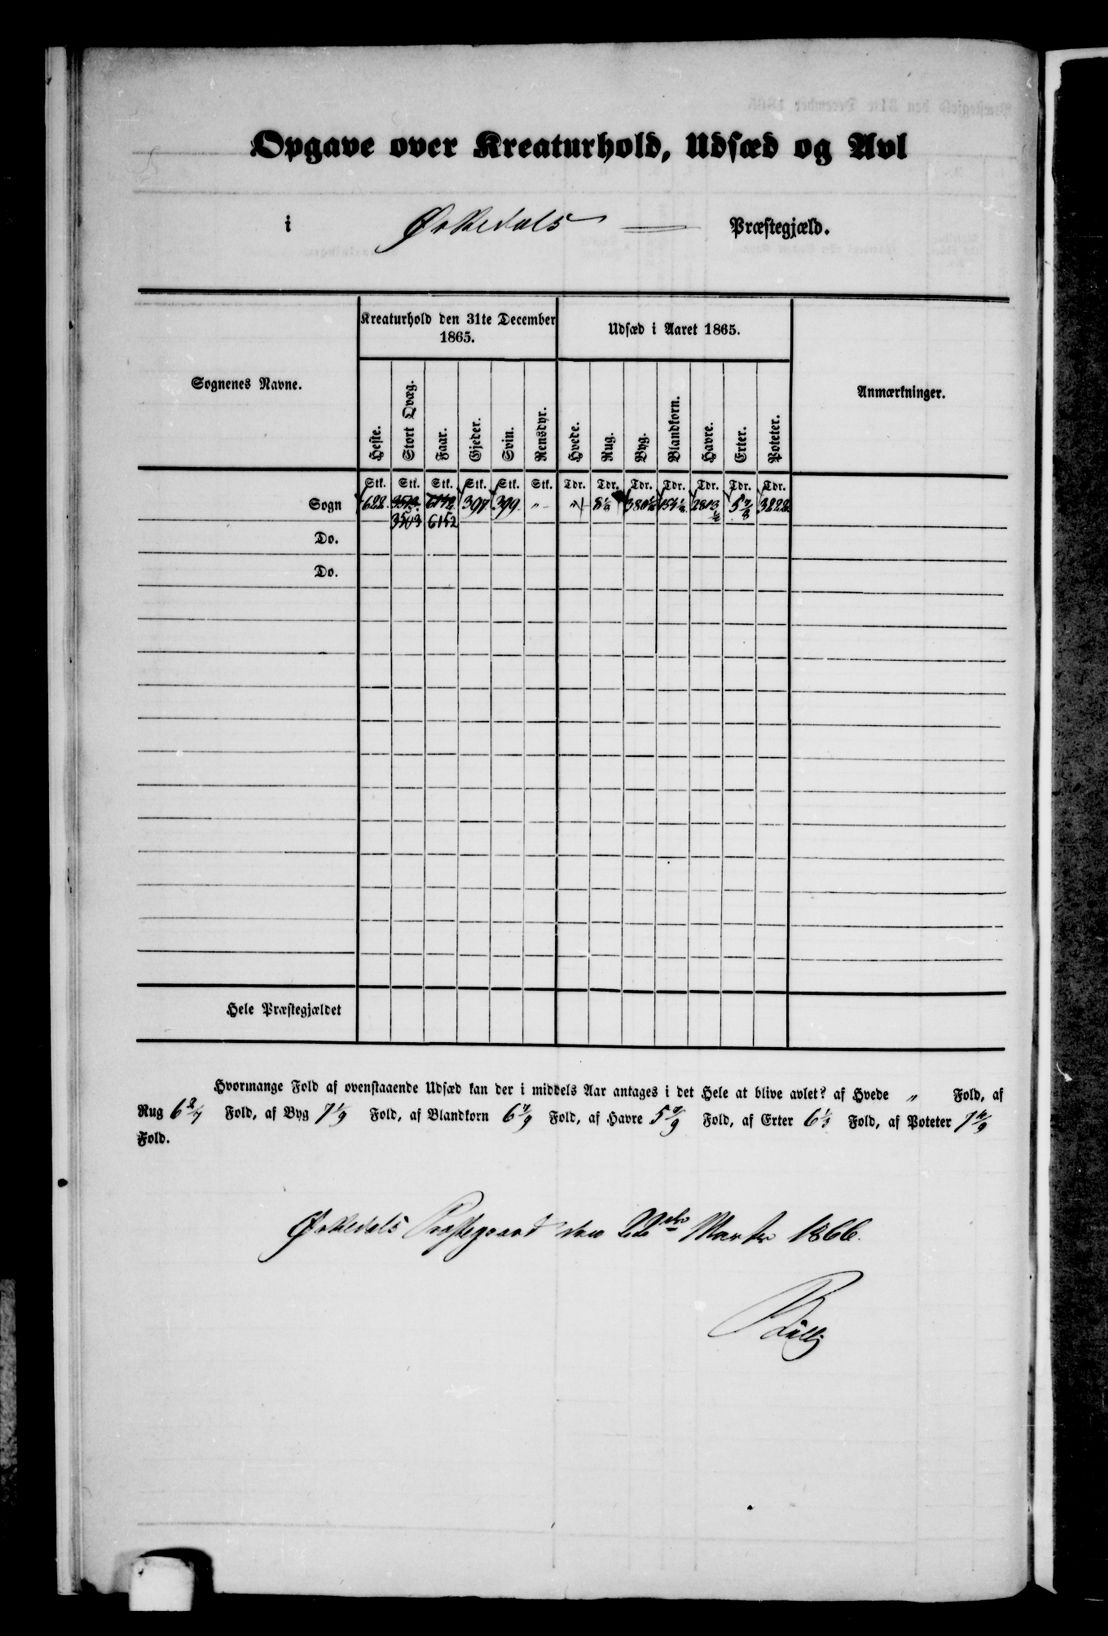 Opgave over Kreaturhold, Udsæd og Avl
i Ørkedals Præstegjæld.
Sognenes Navne.
Kreaturhold den 31te December 1865.
Udsæd i Aaret 1865.
Anmærkninger.
Heste. Stort Qvæg. Faar. Gjeder. Svin. Rensdyr. Hvede. Rug. Byg. Blandkorn. Havre. Erter. Poteter.
Stk. Stk. Stk. Stk. Stk. Stk. Tdr. Tdr. Tdr. Tdr. Tdr. Tdr. Tdr.
Sogn 622 397 399 " 3222
3503 6152
Do.
Do.
Hele Præstegjældet
Hvormange Fold af ovenstaaende Udsæd kan der i middels Aar antages i det Hele at blive avlet? af Hvede " Fold, af
Rug 6 2/7 Fold, af Byg 7 1/9 Fold, af Blandkorn Fold, af Havre Fold, af Erter 6 1/3 Fold, af Poteter
Fold.
Ørkedals Præstegaard den 22de Marts 1866.